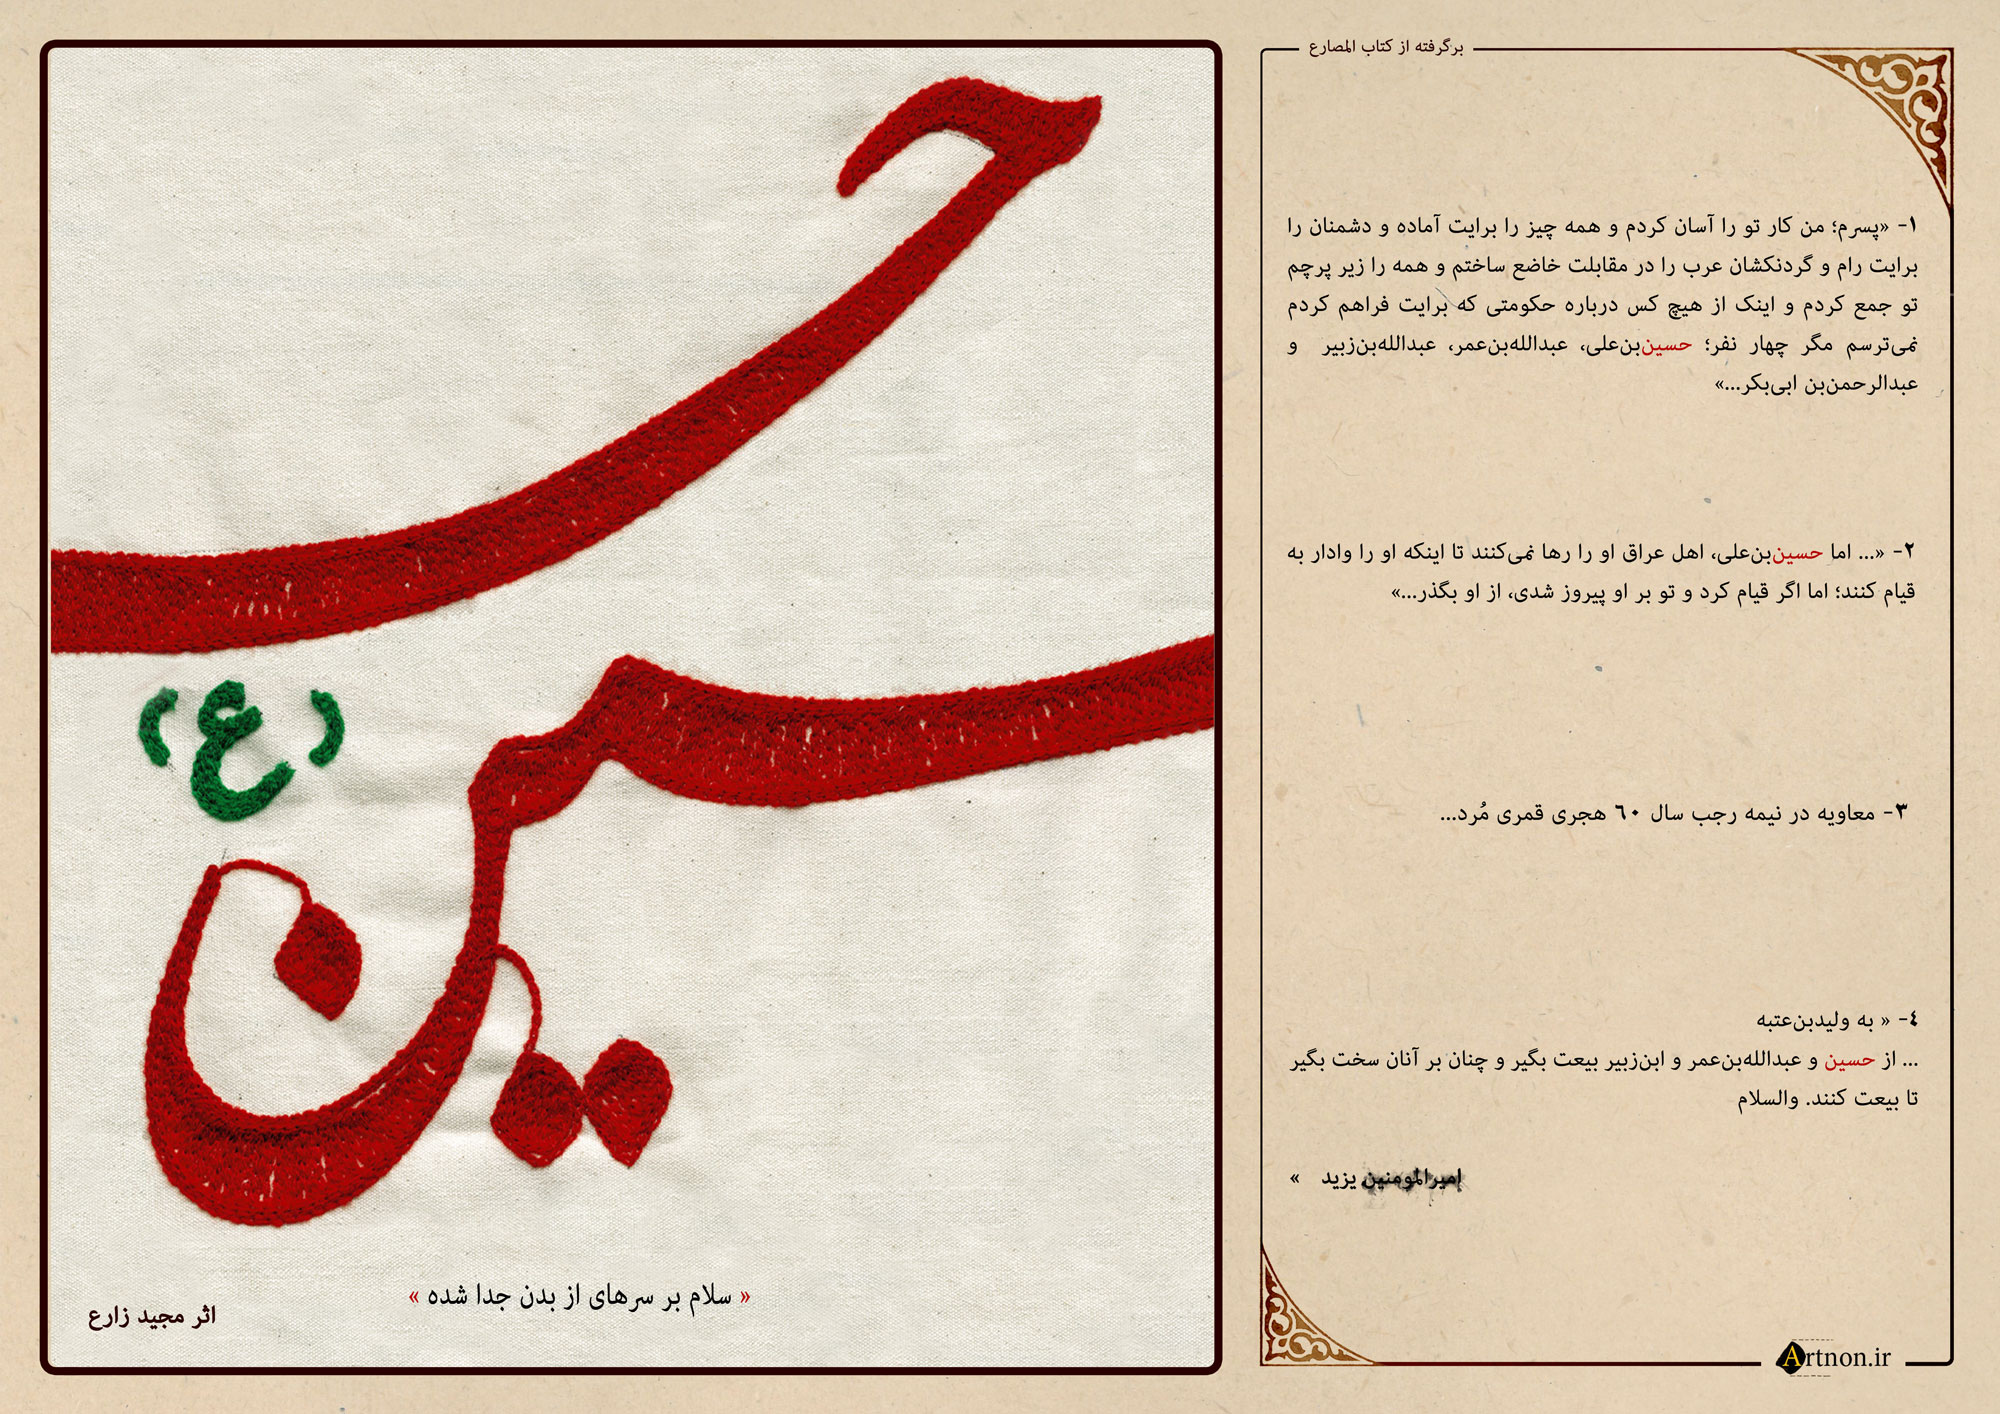 برگرفته از کتاب المصارع
۱- «پسرم؛ من کار تو را آسان کردم و همه چیز را برایت آماده و دشمنان را
برایت رام و گردنکشان عرب را در مقابلت خاضع ساختم و همه را زیر پرچم
تو جمع کردم و اینک از هیچ کس درباره حکومتی که برایت فراهم کردم
نمی‌ترسم مگر چهار نفر؛ حسین‌بن‌علی، عبدالله‌بن‌عمر، عبدالله‌بن‌زبیر و
عبدالرحمن‌بن ابی‌بکر...»
۲- «... اما حسین‌بن‌علی، اهل عراق او را رها نمی‌کنند تا اینکه او را وادار به
قیام کنند؛ اما اگر قیام کرد و تو بر او پیروز شدی، از او بگذر...»
۳- معاویه در نیمه رجب سال ٦٠ هجری قمری مُرد...
٤- « به ولیدبن‌عتبه
... از حسین و عبدالله‌بن‌عمر و ابن‌زبیر بیعت بگیر و چنان بر آنان سخت بگیر
تا بیعت کنند. والسلام
امیرالمومنین یزید »
Artnon.ir
حسین
(ع)
« سلام بر سرهای از بدن جدا شده »
اثر مجید زارع